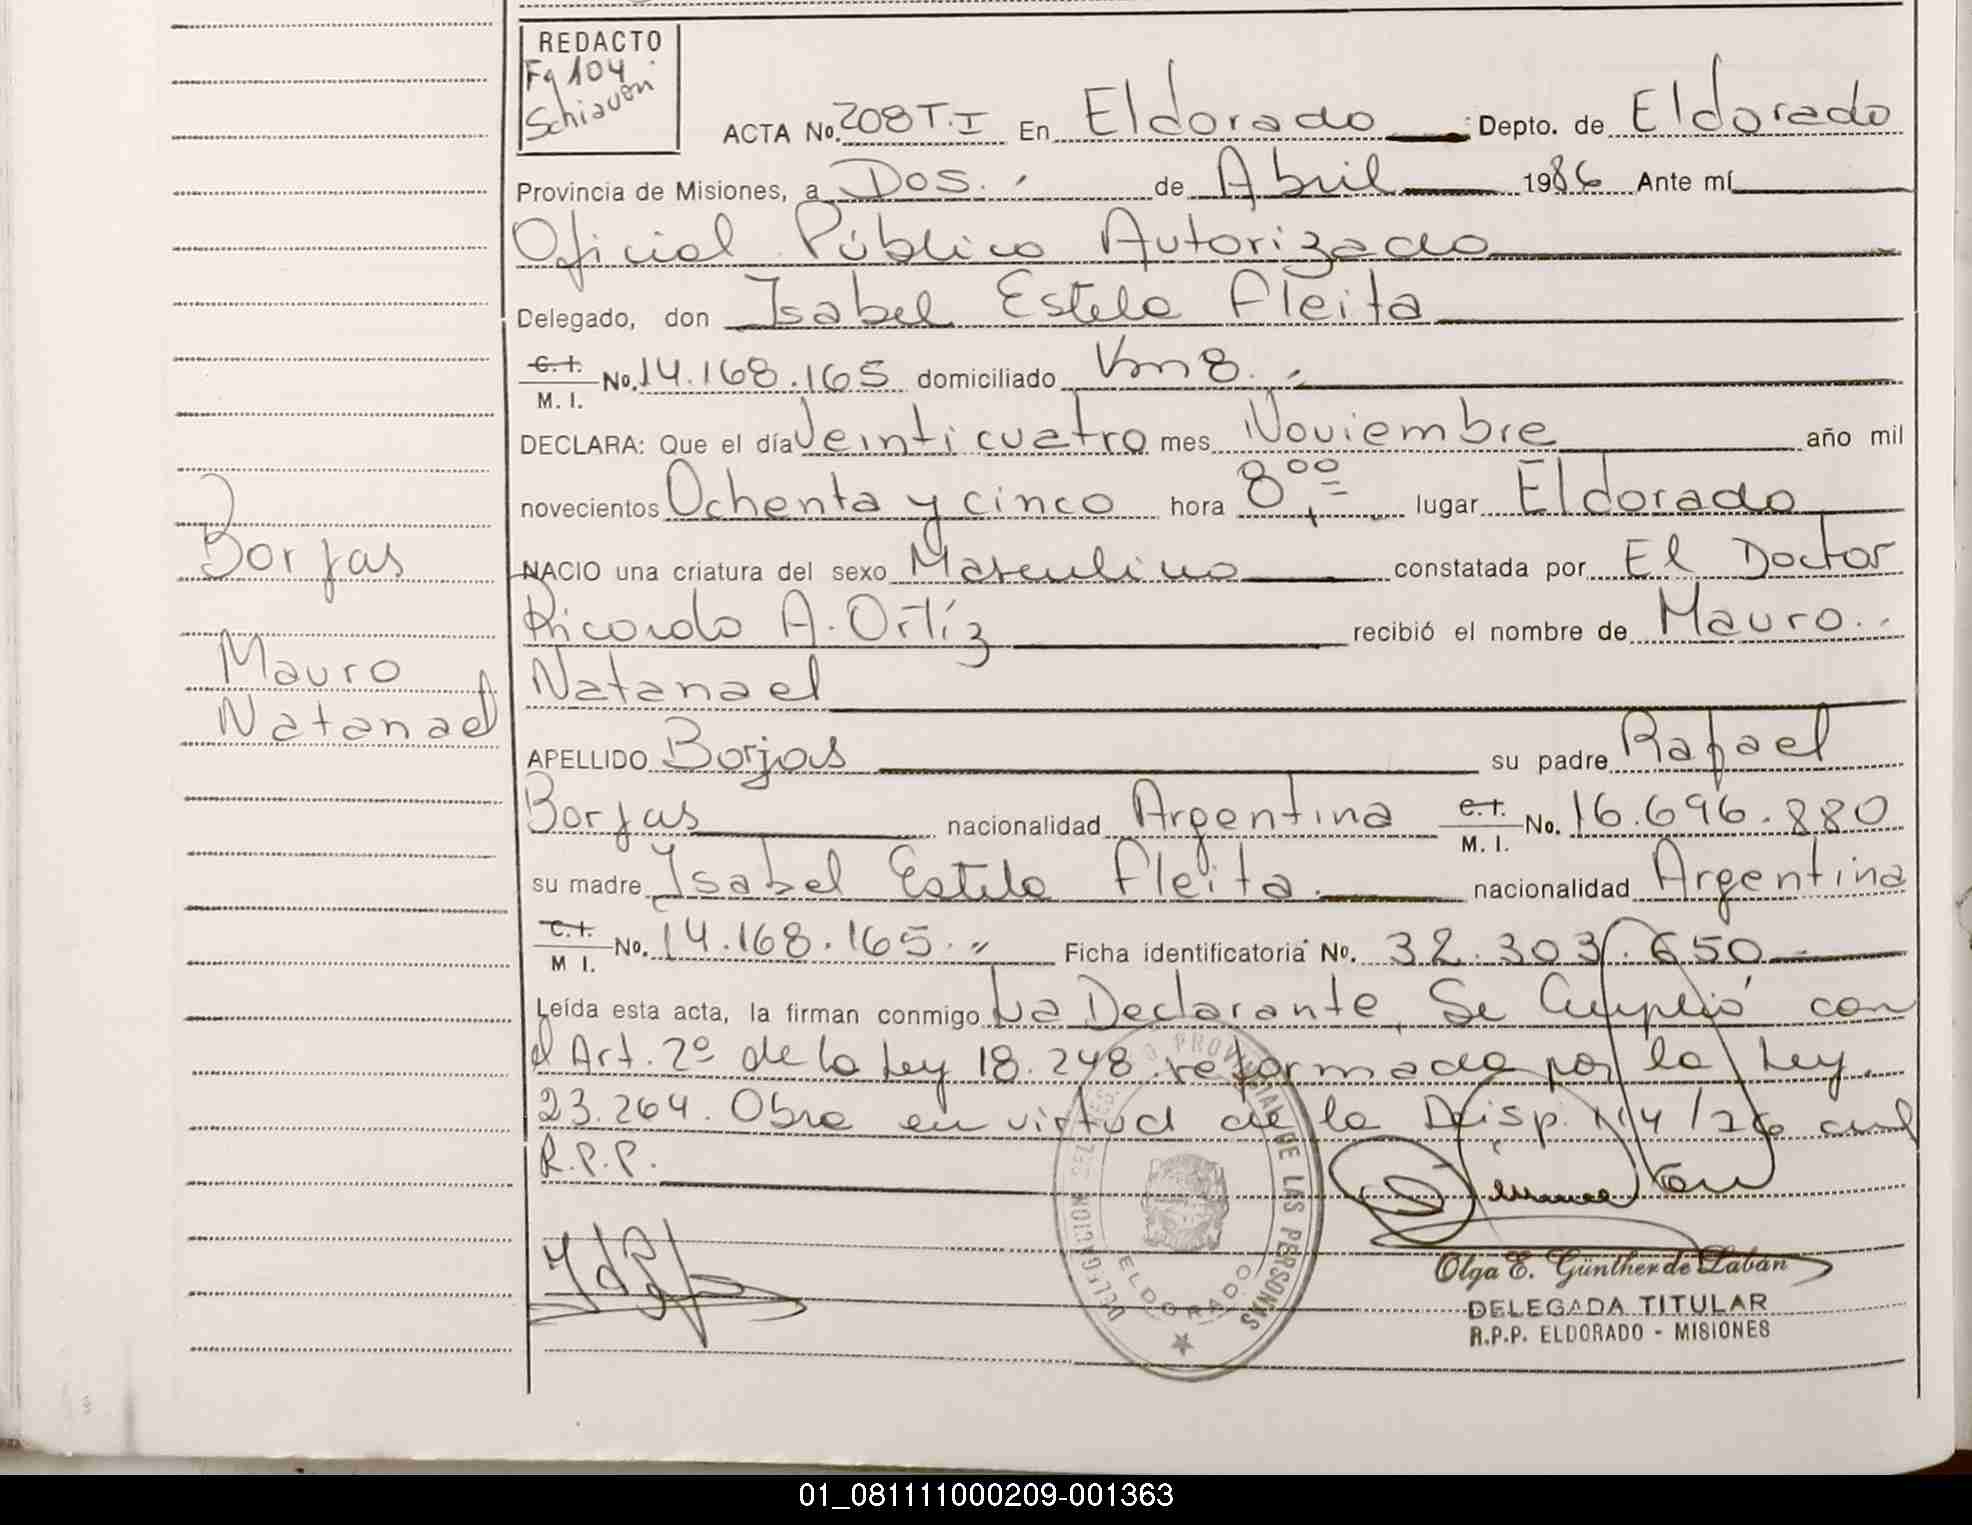 REDACTO
Fq 104
Schiavoni
ACTA No. 208 T.I En Eldorado Depto. de Eldorado
Provincia de Misiones, a Dos.- de Abril 1986 Ante mí
Oficial Público Autorizado
Delegado, don Isabel Estela Fleita
C. I.
M. I. No. 14.168.165 domiciliado Km 8.-
DECLARA: Que el día Veinticuatro mes Noviembre año mil
novecientos Ochenta y cinco hora 8⁰⁰ lugar Eldorado
NACIO una criatura del sexo Masculino constatada por El Doctor
Ricardo A. Ortíz recibió el nombre de Mauro
Natanael
APELLIDO Borjas su padre Rafael
Borjas nacionalidad Argentina C. I. M. I. No. 16.696.880
su madre Isabel Estela Fleita nacionalidad Argentina
C. I.
M I. No. 14.168.165.- Ficha identificatoria No. 32.303.650
Leída esta acta, la firman conmigo La Declarante, Se Cumplió con
el Art. 2º de la Ley 18.248 reformada por la Ley
23.264. Obra en virtud de la Disp. Nº 4/76 del
R.P.P.
Borjas
Mauro
Natanael
DELEGACION ELDORADO
PROVINCIAL DE LAS PERSONAS
Olga E. Günther de Labán
DELEGADA TITULAR
R.P.P. ELDORADO - MISIONES
01_081111000209-001363